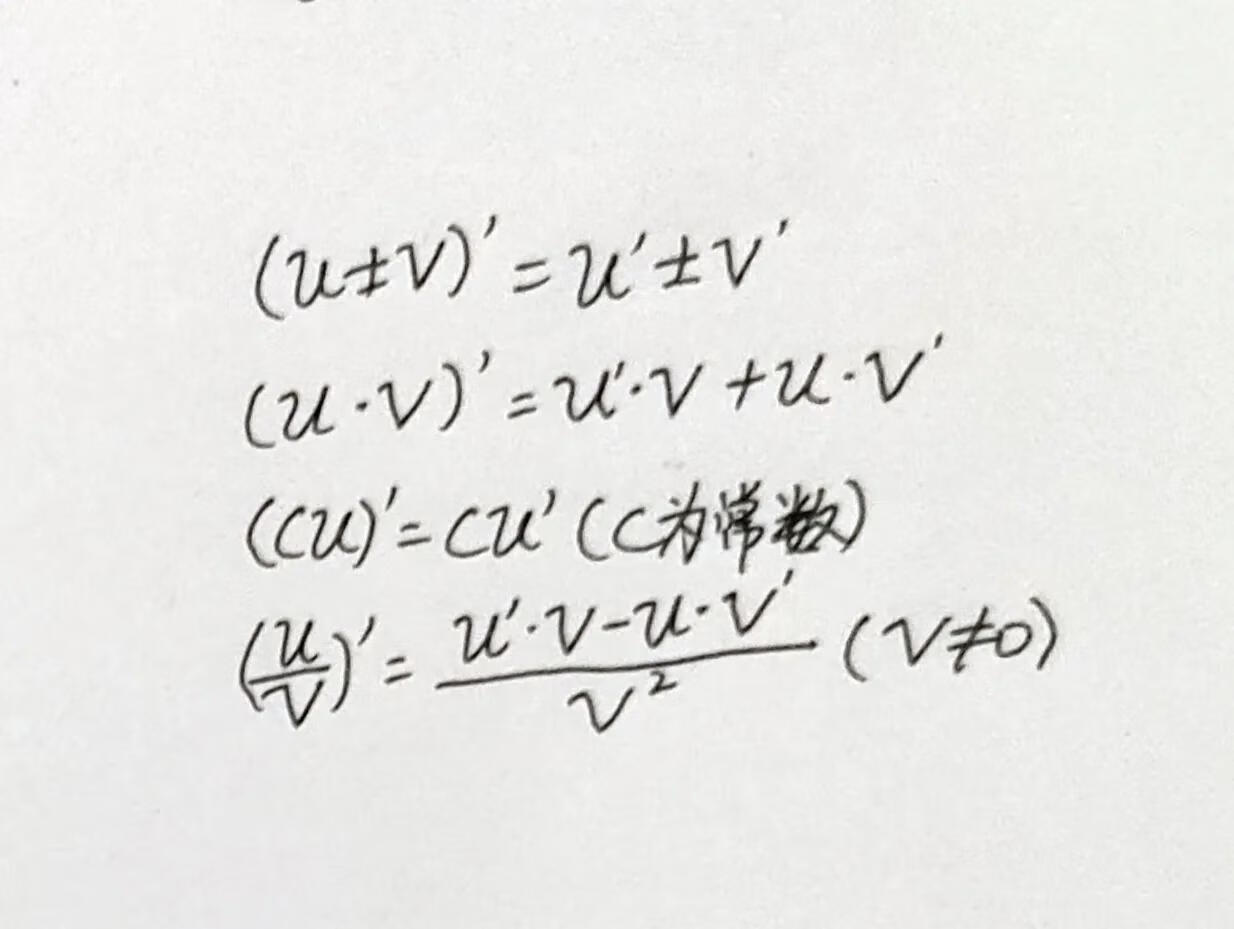 (u±v)'=u'±v'
(u·v)'=u'·v+u·v'
(cu)'=cu'(c为常数)
(u/v)'=(u'·v-u·v')/v² (v≠0)